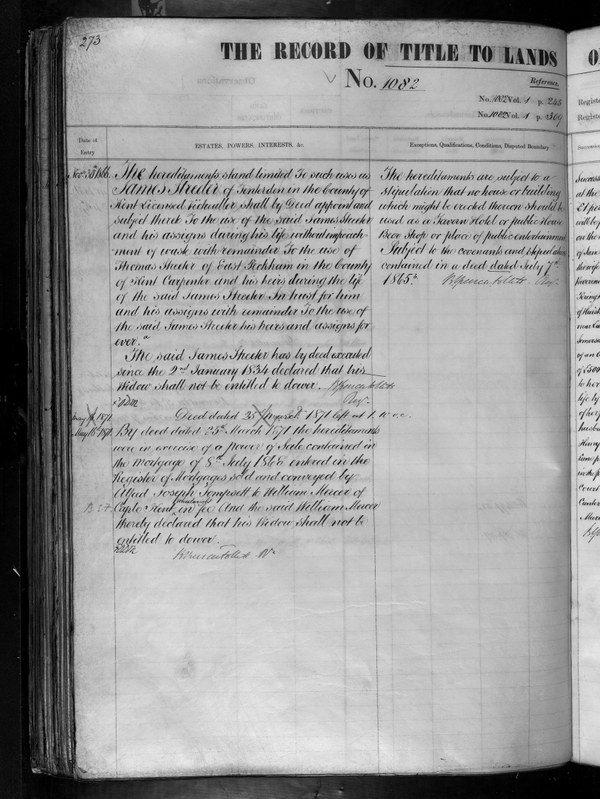 273
THE RECORD OF TITLE TO LANDS
No. 1082
Reference.
Vol. 1 p. 245
No. 1082 Vol. 1 p. 309
Date of
Entry
ESTATES, POWERS, INTERESTS, &c.
Exceptions, Qualifications, Conditions, Disputed Boundary
The hereditaments stand limited To such uses as
James Streeter of Tenterden in the County of
Kent Licensed Victualler shall by Deed appoint and
subject thereto To the use of the said James Streeter
and his assigns during his life without impeach-
ment of waste with remainder To the use of
Thomas Streeter of East Peckham in the County
of Kent Carpenter and his heirs during the life
of the said James Streeter In trust for him
and his assigns with remainder To the use of
the said James Streeter his heirs and assigns for
ever.
The said James Streeter has by deed executed
since the 2nd January 1834 declared that his
Widow shall not be entitled to dower.
Regr.
Deed dated 25 1871 left at
By deed dated 25th March 1871 the hereditaments
were in exercise of a power of Sale contained in
the Mortgage of 8th July 1868 entered in the
Register of Mortgages sold and conveyed by
Alfred Joseph Tompsett to William Mercer of
Capls Kent in fee And the said William Mercer
thereby declared that his Widow shall not be
entitled to dower.
The hereditaments are subject to a
stipulation that no house or building
which might be erected thereon should be
used as a Tavern Hotel or public House
Beer Shop or place of public entertainment
Subject to the covenants and stipulations
contained in a deed dated July 7th
1865.
Regr.